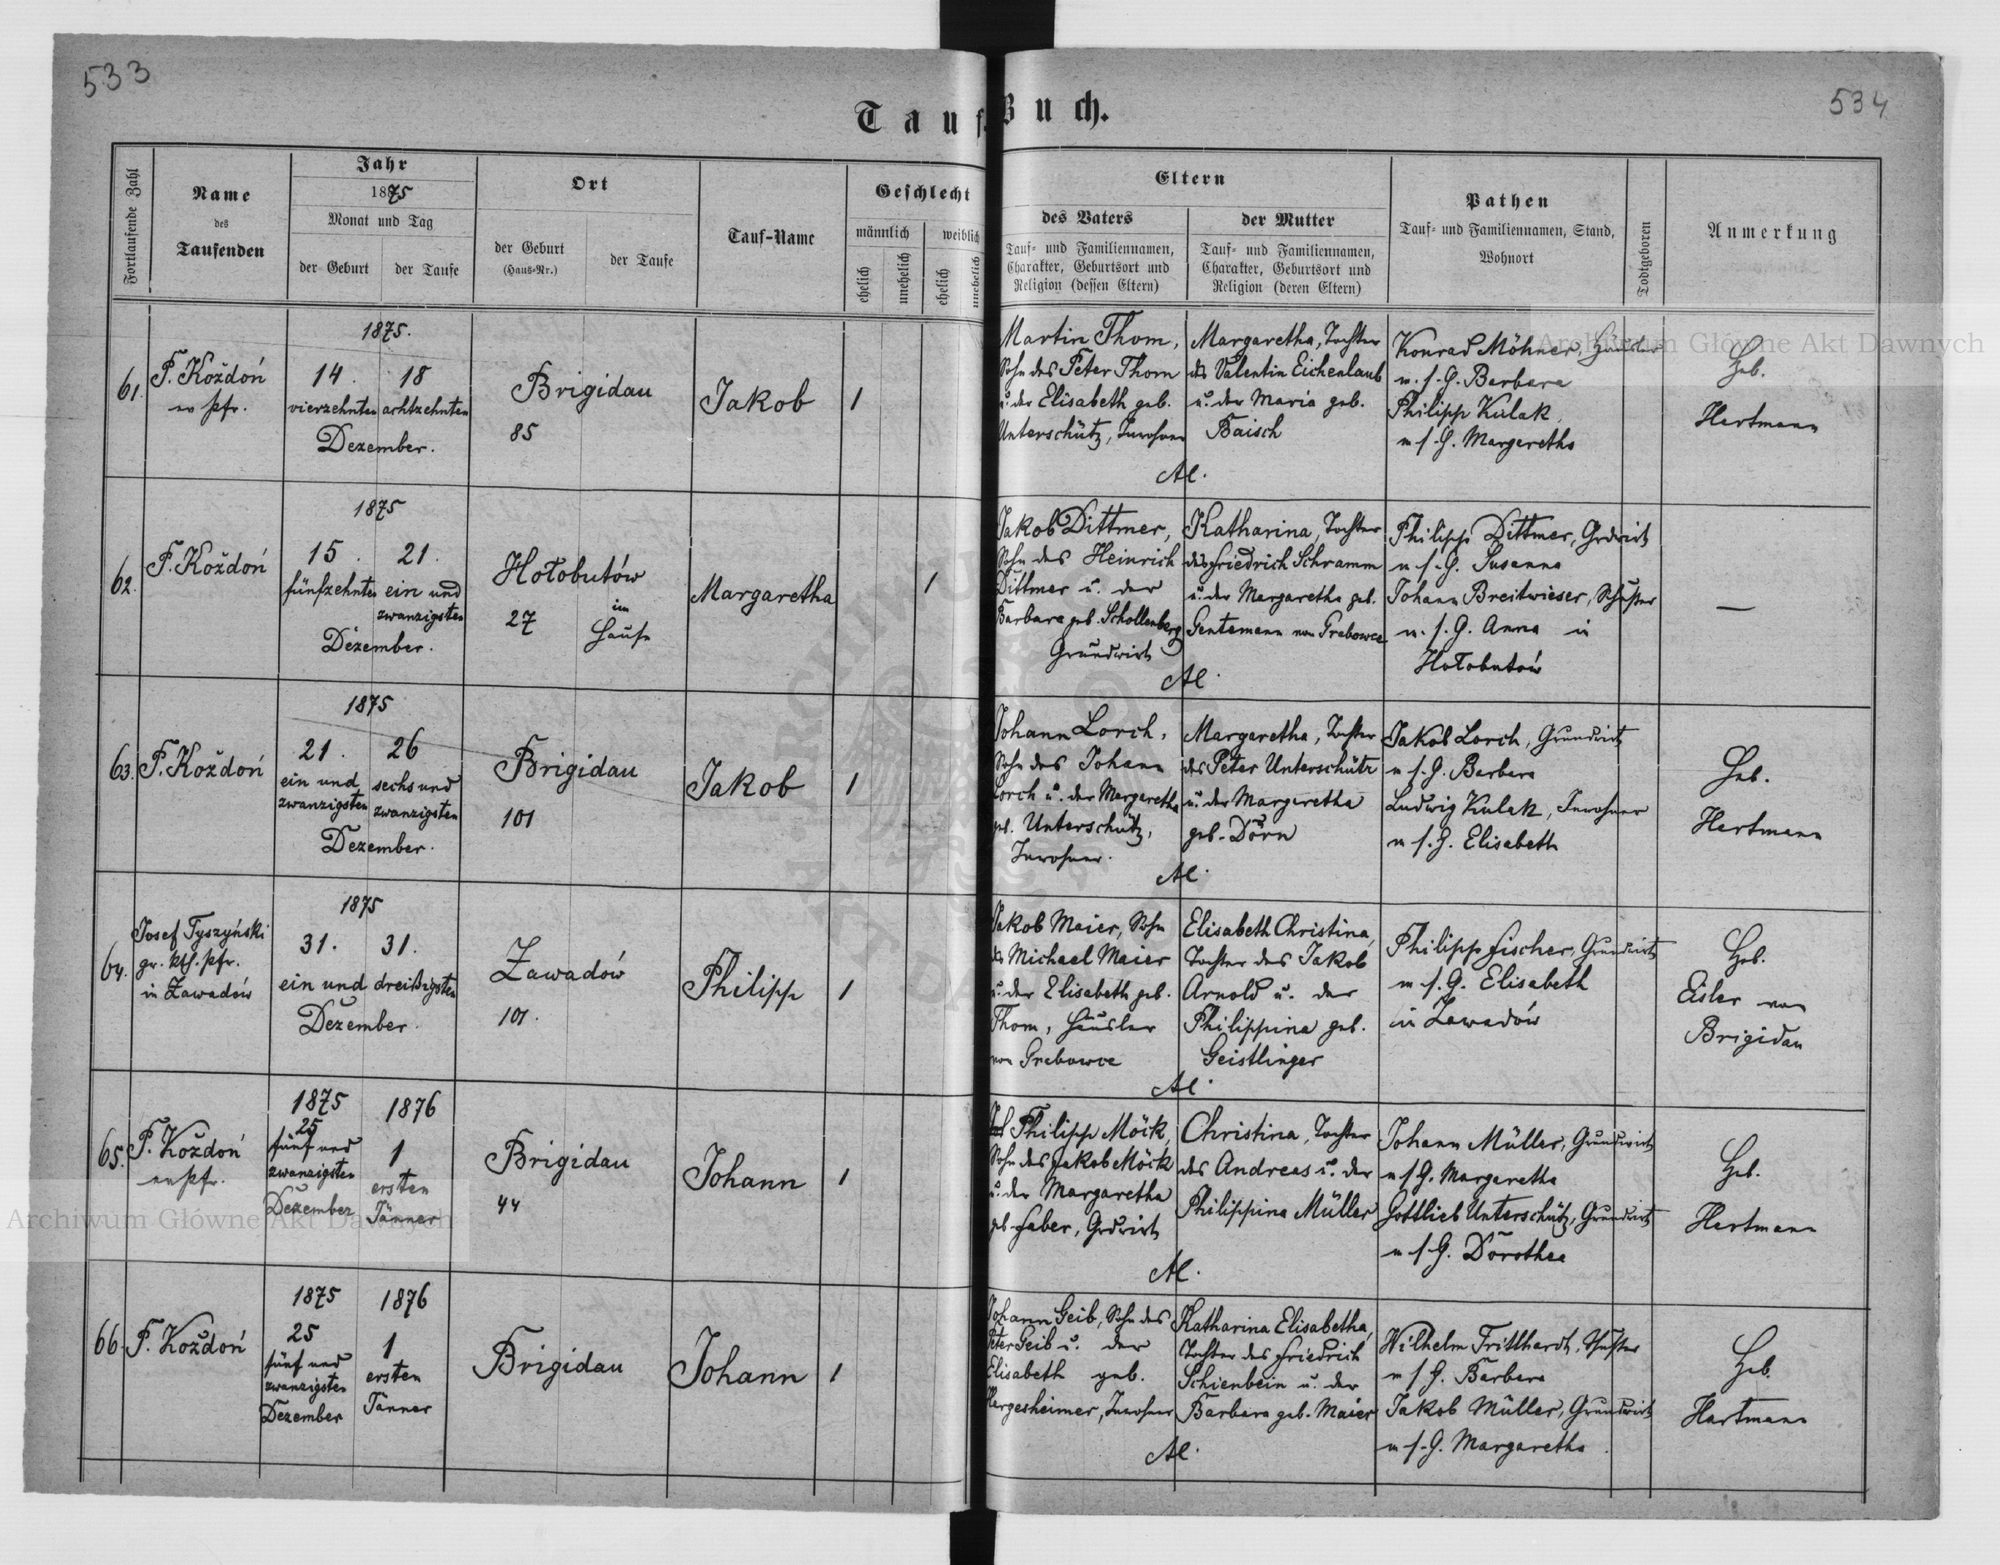 533
534
Tauf-Buch.
Fortlaufende Zahl
Name
des
Taufenden
Jahr
1875
Monat und Tag
der Geburt
der Taufe
Ort
der Geburt
(Haus-Nr.)
der Taufe
Tauf-Name
Geschlecht
männlich
weiblich
ehelich
unehelich
ehelich
unehelich
Eltern
des Vaters
Tauf- und Familiennamen,
Charakter, Geburtsort und
Religion (dessen Eltern)
der Mutter
Tauf- und Familiennamen,
Charakter, Geburtsort und
Religion (deren Eltern)
Pathen
Tauf- und Familiennamen, Stand,
Wohnort
Todtgeboren
Anmerkung
61.
F. Koždoń
ev Pfr.
1875.
14. 18
vierzehnten achtzehnten
Dezember.
Brigidau
85
Jakob
1
Martin Thom,
Sohn des Peter Thom
u. der Elisabeth geb.
Unterschütz, Inwohner
Margaretha, Tochter
des Valentin Eichenlaub
u. der Maria geb.
Baisch
Al.
Konrad Möhner, Häusler
u. s. G. Barbara
Philipp Kulak,
u s. G. Margaretha
Heb.
Hartmann
62.
F. Koždoń
1875
15. 21.
fünfzehnten ein und
zwanzigsten
Dezember.
Hołobutów
27
im
Hause
Margaretha
1
Jakob Dittmer,
Sohn des Heinrich
Dittmer u. der
Barbara geb. Schollenberg
Grundwirt
Katharina, Tochter
des Friedrich Schramm
u. der Margaretha geb.
Gentemann von Grabowce
Al.
Philipp Dittmer, Grdwirt
u s. G. Susanna
Johann Breitwieser, Schuster
u. s. G. Anna in
Hołobutów
—
63.
F. Koždoń
1875
21. 26
ein und sechs und
zwanzigsten zwanzigsten
Dezember.
Brigidau
101
Jakob
1
Johann Lorch,
Sohn des Johann
Lorch u. der Margaretha
geb. Unterschütz,
Inwohner.
Margaretha, Tochter
des Peter Unterschütz
u. der Margaretha
geb. Dörn
Al.
Jakob Lorch, Grundwirt
u s. G. Barbara
Ludwig Kulak, Inwohner
u s. G. Elisabeth
Heb.
Hartmann
64.
Josef Tyszyński
gr. kth. Pfr.
in Zawadów
1875
31. 31.
ein und dreißigsten
Dezember.
Zawadów
101.
Philipp
1
Jakob Maier, Sohn
des Michael Maier
u. der Elisabeth geb.
Thom, Häusler
von Grabowce
Elisabeth Christina,
Tochter des Jakob
Arnold u. der
Philippina geb.
Geistlinger
Al.
Philipp Fischer, Grundwirt
u s. G. Elisabeth
in Zawadów
Heb.
Eisler von
Brigidau
65.
F. Koždoń
ev Pfr.
1875 1876
25
fünf und
zwanzigsten
Dezember
1
ersten
Jänner
Brigidau
44
Johann
1
Philipp Möck,
Sohn des Jakob Möck
u. der Margaretha
geb. Faber, Grdwirt
Christina, Tochter
des Andreas u. der
Philippina Müller
Al.
Johann Müller, Grundwirt
u s. G. Margaretha
Gottlieb Unterschütz, Grundwirt
u s. G. Dorothea
Heb.
Hartmann
66.
F. Koždoń
1875 1876
25
fünf und
zwanzigsten
Dezember
1
ersten
Jänner
Brigidau
Johann
1
Johann Geib, Sohn des
Peter Geib u. der
Elisabeth geb.
Hargesheimer, Inwohner
Katharina Elisabetha,
Tochter des Friedrich
Schienbein u. der
Barbara geb. Maier
Al.
Wilhelm Tritthardt, Schuster
u s. G. Barbara
Jakob Müller, Grundwirt
u s. G. Margaretha
Heb
Hartmann
Archiwum Główne Akt Dawnych
Archiwum Główne Akt Dawnych